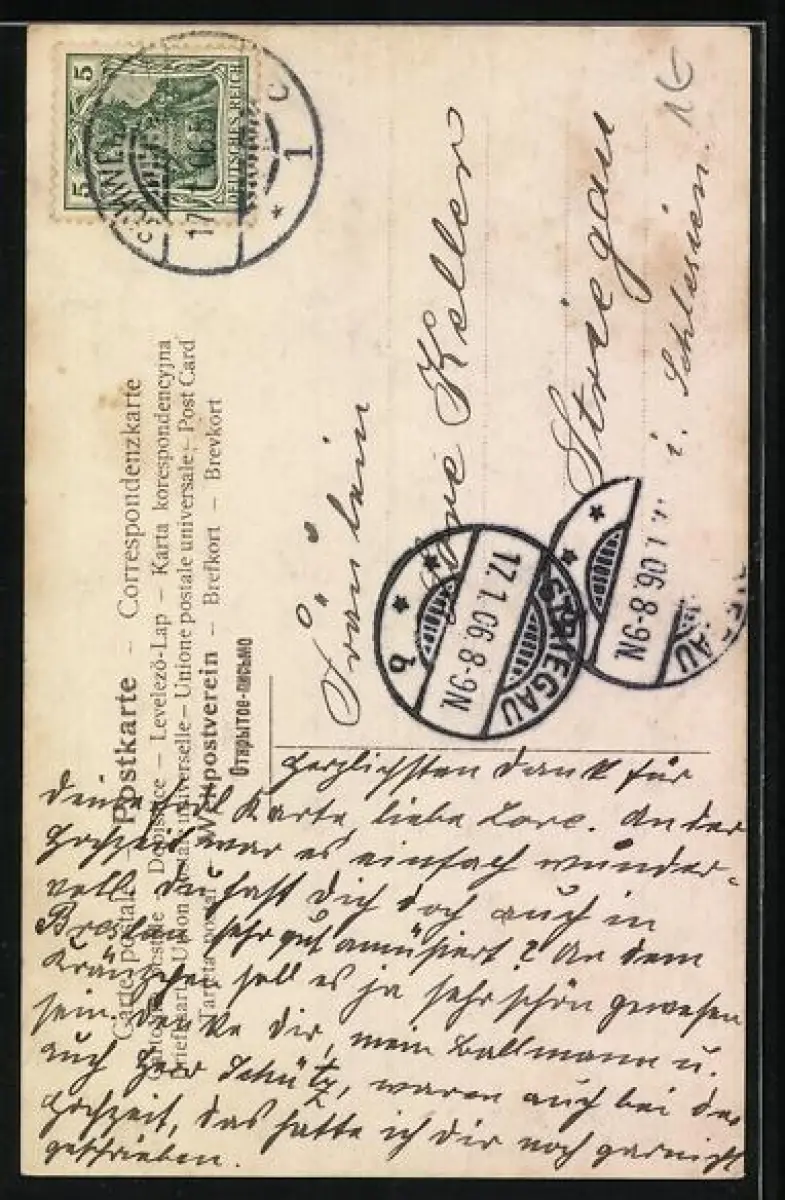 5
5
DEUTSCHES REICH
C
1
17. 1. 06. 5
Carte postale – Postkarte – Correspondenzkarte
Dopisnice – Levelező-Lap – Karta korespondencyjna
Briefkaart – Union postale universelle – Unione postale universale – Post Card
Weltpostverein – Brefkort – Brevkort
Открытое-письмо
Fräulein
Keller
Striegau
i. Schlesien.
STRIEGAU
17. 1. 06. 8-9N.
b
1. 06. 8-9N.
Herzlichsten Dank für
Deine Karte, liebe Lore. An der
Hochzeit war es einfach wunder-
voll. Du hast Dich doch auch in
Breslau sehr gut amüsiert? An dem
Kränzchen soll es ja sehr schön gewesen
sein. Denke Dir, mein Ballmann u.
auch Herr Schütz, waren auch bei der
Hochzeit, das hatte ich Dir noch garnicht
geschrieben.